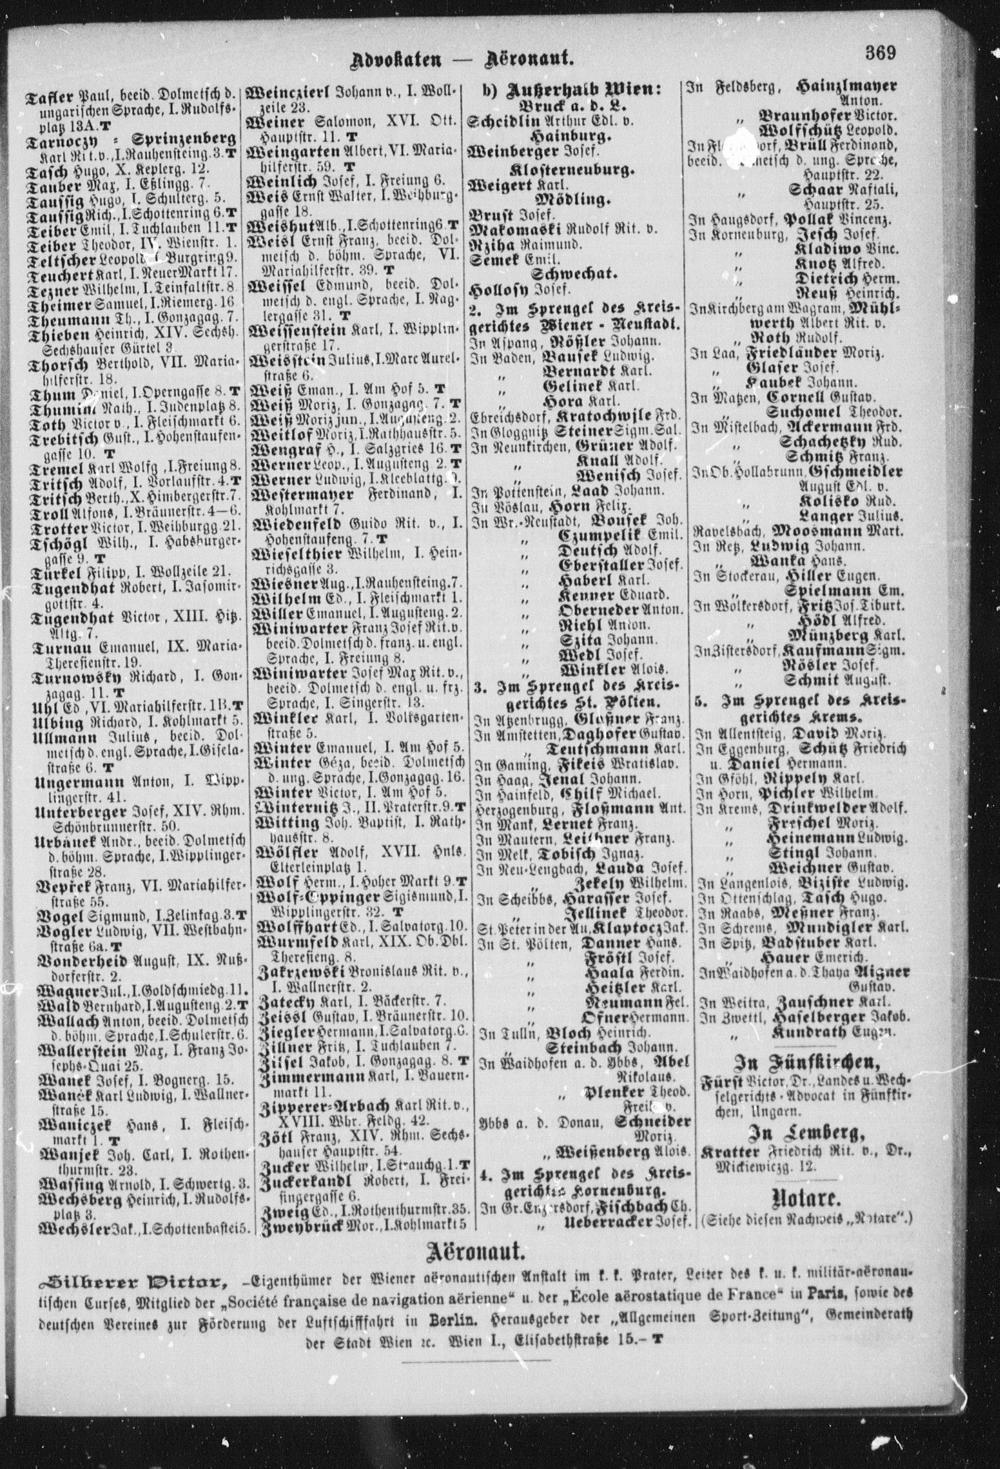 Advokaten — Aëronaut.
369
Tafler Paul, beeid. Dolmetsch d.
ungarischen Sprache, I. Rudolfs-
platz 13A. T
Tarnoczy - Sprinzenberg
Karl Rit.v., I.Rauhensteing.3. T
Tasch Hugo, X. Keplerg. 12.
Tauber Max, I. Eßlingg. 7.
Taussig Hugo, I. Schulterg. 5.
Taussig Rich., I.Schottenring 6. T
Teiber Emil, I. Tuchlauben 11. T
Teiber Theodor, IV. Wienstr. 1.
Teltscher Leopold, I. Burgring 9.
Teuchert Karl, I. Neuer Markt 17.
Tezner Wilhelm, I. Teinfaltstr. 8.
Theimer Samuel, I. Riemerg. 16
Theumann Th., I. Gonzagag. 7.
Thieben Heinrich, XIV. Sechsh.
Sechshauser Gürtel 3
Thorsch Berthold, VII. Maria-
hilferstr. 18.
Thum Daniel, I.Operngasse 8. T
Thumim Nath., I. Judenplatz 8.
Toth Victor v., I. Fleischmarkt 6.
Trebitsch Gust., I. Hohenstaufen-
gasse 10. T
Tremel Karl Wolfg., I.Freiung 8.
Tritsch Adolf, I. Vorlaufstr. 4. T
Tritsch Berth., X. Himbergerstr.7.
Troll Alfons, I. Bräunerstr. 4—6.
Trotter Victor, I. Weihburgg. 21.
Tschögl Wilh., I. Habsburger-
gasse 9. T
Türkel Filipp, I. Wollzeile 21.
Tugendhat Robert, I. Jasomir-
gottstr. 4.
Tugendhat Victor, XIII. Hitz.
Altg. 7.
Turnau Emanuel, IX. Maria-
Theresienstr. 19.
Turnowsky Richard, I. Gon-
zagag. 11. T
Uhl Ed., VI. Mariahilferstr. 1B. T
Ulbing Richard, I. Kohlmarkt 5.
Ullmann Julius, beeid. Dol-
metsch d. engl. Sprache, I.Gisela-
straße 6. T
Ungermann Anton, I. Wipp-
lingerstr. 41.
Unterberger Josef, XIV. Rhm.
Schönbrunnerstr. 50.
Urbánek Andr., beeid. Dolmetsch
d. böhm. Sprache, I.Wipplinger-
straße 28.
Vepřek Franz, VI. Mariahilfer-
straße 55.
Vogel Sigmund, I.Zelinkag.3. T
Vogler Ludwig, VII. Westbahn-
straße 6a. T
Vonderheid August, IX. Nuß-
dorferstr. 2.
Wagner Jul., I.Goldschmiedg.11.
Wald Bernhard, I. Augusteng.2. T
Wallach Anton, beeid. Dolmetsch
d. böhm. Sprache, I.Schulerstr. 6.
Wallerstein Max, I. Franz Jo-
sephs-Quai 25.
Wanek Josef, I. Bognerg. 15.
Wanèk Karl Ludwig, I. Wallner-
straße 15.
Waniczek Hans, I. Fleisch-
markt 1. T
Wanjek Joh. Carl, I. Rothen-
thurmstr. 23.
Wassing Arnold, I. Schwertg. 3.
Wechsberg Heinrich, I. Rudolfs-
platz 3.
Wechsler Jak., I.Schottenbastei5.
Weinczierl Johann v., I. Woll-
zeile 23.
Weiner Salomon, XVI. Ott.
Hauptstr. 11. T
Weingarten Albert, VI. Maria-
hilferstr. 59. T
Weinlich Josef, I. Freiung 6.
Weis Ernst Walter, I. Weihburg-
gasse 18.
Weishut Alb., I.Schottenring6. T
Weisl Ernst Franz, beeid. Dol-
metsch d. böhm. Sprache, VI.
Mariahilferstr. 39. T
Weissel Edmund, beeid. Dol-
metsch d. engl. Sprache, I. Nag-
lergasse 31. T
Weissenstein Karl, I. Wipplin-
gerstraße 17.
Weisstein Julius, I.Marc Aurel-
straße 6.
Weiß Eman., I. Am Hof 5. T
Weiß Moriz, I. Gonzagag. 7. T
Weiß Moriz jun., I. Augusteng. 2.
Weitlof Moriz, I.Rathhausstr. 5.
Wengraf H., I. Salzgries 16. T
Werner Leop., I. Augusteng 2. T
Werner Ludwig, I.Kleeblattg.
Westermayer Ferdinand, I.
Kohlmarkt 7.
Wiedenfeld Guido Rit. v., I.
Hohenstaufeng. 7. T
Wieselthier Wilhelm, I. Hein-
richsgasse 3.
Wiesner Aug., I.Rauhensteing.7.
Wilhelm Ed., I. Fleischmarkt 1.
Willer Emanuel, I. Augusteng. 2.
Winiwarter Franz Josef Rit.v.
beeid. Dolmetsch d. franz. u. engl.
Sprache, I. Freiung 8.
Winiwarter Josef Max Rit.v.,
beeid. Dolmetsch d. engl. u. frz.
Sprache, I. Singerstr. 13.
Winkler Karl, I. Volksgarten-
straße 5.
Winter Emanuel, I. Am Hof 5.
Winter Géza, beeid. Dolmetsch
d. ung. Sprache, I.Gonzagag. 16.
Winter Victor, I. Am Hof 5.
Winternitz J., II. Praterstr.9. T
Witting Joh. Baptist, I. Rath-
hausstr. 8.
Wölfler Adolf, XVII. Hnls.
Elterleinplatz 1.
Wolf Herm., I. Hoher Markt 9. T
Wolf-Eppinger Sigismund, I.
Wipplingerstr. 32. T
Wolffhart Ed., I. Salvatorg. 10.
Wurmfeld Karl, XIX. Ob. Dbl.
Theresieng. 8.
Zakrzewski Bronislaus Rit. v.,
I. Wallnerstr. 2.
Zatecky Karl, I. Bäckerstr. 7.
Zeissl Gustav, I. Bräunerstr. 10.
Ziegler Hermann, I.Salvatorg.6.
Zillner Fritz, I. Tuchlauben 7.
Zilsel Jakob, I. Gonzagag. 8. T
Zimmermann Karl, I. Bauern-
markt 11.
Zipperer-Arbach Karl Rit.v.,
XVIII. Whr. Feldg. 42.
Zötl Franz, XIV. Rhm. Sechs-
hauser Hauptstr. 54.
Zucker Wilhelm, I.Strauchg.1. T
Zuckerkandl Robert, I. Frei-
singergasse 6.
Zweig Ed., I. Rothenthurmstr.35.
Zweybrück Mor., I.Kohlmarkt 5
b) Außerhalb Wien:
Bruck a. d. L.
Scheidlin Arthur Edl. v.
Hainburg.
Weinberger Josef.
Klosterneuburg.
Weigert Karl.
Mödling.
Brust Josef.
Makomaski Rudolf Rit. v.
Rziha Raimund.
Semek Emil.
Schwechat.
Hollosy Josef.
2. Im Sprengel des Kreis-
gerichtes Wiener-Neustadt.
In Aspang, Rößler Johann.
In Baden, Bausek Ludwig.
„ Bernardt Karl.
„ Gelinek Karl.
„ Hora Karl.
Ebreichsdorf, Kratochwjle Frd.
In Gloggnitz Steiner Sigm. Sal.
In Neunkirchen, Grüner Adolf.
„ Knall Adolf.
„ Wenisch Josef.
In Pottenstein, Laad Johann.
In Vöslau, Horn Felix.
In Wr.-Neustadt, Bousek Joh.
„ Czumpelik Emil.
„ Deutsch Adolf.
„ Eberstaller Josef.
„ Haberl Karl.
„ Kenner Eduard.
„ Oberneder Anton.
„ Riehl Anton.
„ Szita Johann.
„ Wedl Josef.
„ Winkler Alois.
3. Im Sprengel des Kreis-
gerichtes St. Pölten.
In Atzenbrugg, Gloßner Franz.
In Amstetten, Daghofer Gustav.
„ Teutschmann Karl.
In Gaming, Fikeis Wratislav.
In Haag, Jenal Johann.
In Hainfeld, Chilf Michael.
Herzogenburg, Floßmann Ant.
In Mank, Lernet Franz.
In Mautern, Leithner Franz.
In Melk, Tobisch Ignaz.
In Neu-Lengbach, Lauda Josef.
„ Zekely Wilhelm.
In Scheibbs, Harasser Josef.
„ Jellinek Theodor.
St. Peter in der Au, Klaptocz Jak.
In St. Pölten, Danner Hans.
„ Fröstl Josef.
„ Haala Ferdin.
„ Heitzler Karl.
„ Neumann Fel.
„ Ofner Hermann.
In Tulln, Bloch Heinrich.
„ Steinbach Johann.
In Waidhofen a. d. Ybbs, Abel
Nikolaus.
„ Plenker Theod.
Freih. v.
Ybbs a. d. Donau, Schneider
Moriz.
„ Weißenberg Alois.
4. Im Sprengel des Kreis-
gerichtes Korneuburg.
In Gr. Enzersdorf, Fischbach Ch.
„ Ueberracker Josef.
In Feldsberg, Hainzlmayer
Anton.
„ Braunhofer Victor.
„ Wolfschütz Leopold.
In Fl dorf, Brüll Ferdinand,
beeid. metsch d. ung. Sprache,
Hauptstr. 22.
„ Schaar Naftali,
Hauptstr. 25.
In Haugsdorf, Pollak Vincenz.
In Korneuburg, Jesch Josef.
„ Kladiwo Vinc.
„ Knotz Alfred.
„ Dietrich Herm.
„ Reuß Heinrich.
In Kirchberg am Wagram, Mühl-
werth Albert Rit. v.
„ Roth Rudolf.
In Laa, Friedländer Moriz.
„ Glaser Josef.
„ Laubek Johann.
In Matzen, Cornell Gustav.
„ Suchomel Theodor.
In Mistelbach, Ackermann Frd.
„ Schachetzky Rud.
„ Schmitz Franz.
In Ob. Hollabrunn, Gschmeidler
August Edl. v.
„ Kolisko Rud.
„ Langer Julius.
Ravelsbach, Moosmann Mart.
In Retz, Ludwig Johann.
„ Wanka Hans.
In Stockerau, Hiller Eugen.
„ Spielmann Em.
In Wolkersdorf, Fritz Jos. Tiburt.
„ Hödl Alfred.
„ Münzberg Karl.
In Zistersdorf, Kaufmann Sigm.
„ Rösler Josef.
„ Schmit August.
5. Im Sprengel des Kreis-
gerichtes Krems.
In Allentsteig, David Moriz.
In Eggenburg, Schütz Friedrich
u. Daniel Hermann.
In Gföhl, Rippely Karl.
In Horn, Pichler Wilhelm.
In Krems, Drinkwelder Adolf.
„ Freschel Moriz.
„ Heinemann Ludwig.
„ Stingl Johann.
„ Weichner Gustav.
In Langenlois, Viziste Ludwig.
In Ottenschlag, Tasch Hugo.
In Raabs, Meßner Franz.
In Schrems, Mundigler Karl.
In Spitz, Badstuber Karl.
„ Hauer Emerich.
In Waidhofen a. d. Thaya Aigner
Gustav.
In Weitra, Zauschner Karl.
In Zwettl, Haselberger Jakob.
„ Kundrath Eugen.
In Fünfkirchen,
Fürst Victor, Dr., Landes u. Wech-
selgerichts-Advocat in Fünfkir-
chen, Ungarn.
In Lemberg,
Kratter Friedrich Rit. v., Dr.,
Mickiewiczg. 12.
Notare.
(Siehe diesen Nachweis „Notare“.)
Aëronaut.
Silberer Victor, —Eigenthümer der Wiener aëronautischen Anstalt im k. k. Prater, Leiter des k. u. k. militär-aëronau-
tischen Curses, Mitglied der „Société française de navigation aérienne“ u. der „École aérostatique de France“ in Paris, sowie des
deutschen Vereines zur Förderung der Luftschifffahrt in Berlin. Herausgeber der „Allgemeinen Sport-Zeitung“, Gemeinderath
der Stadt Wien ꝛc. Wien I., Elisabethstraße 15.— T